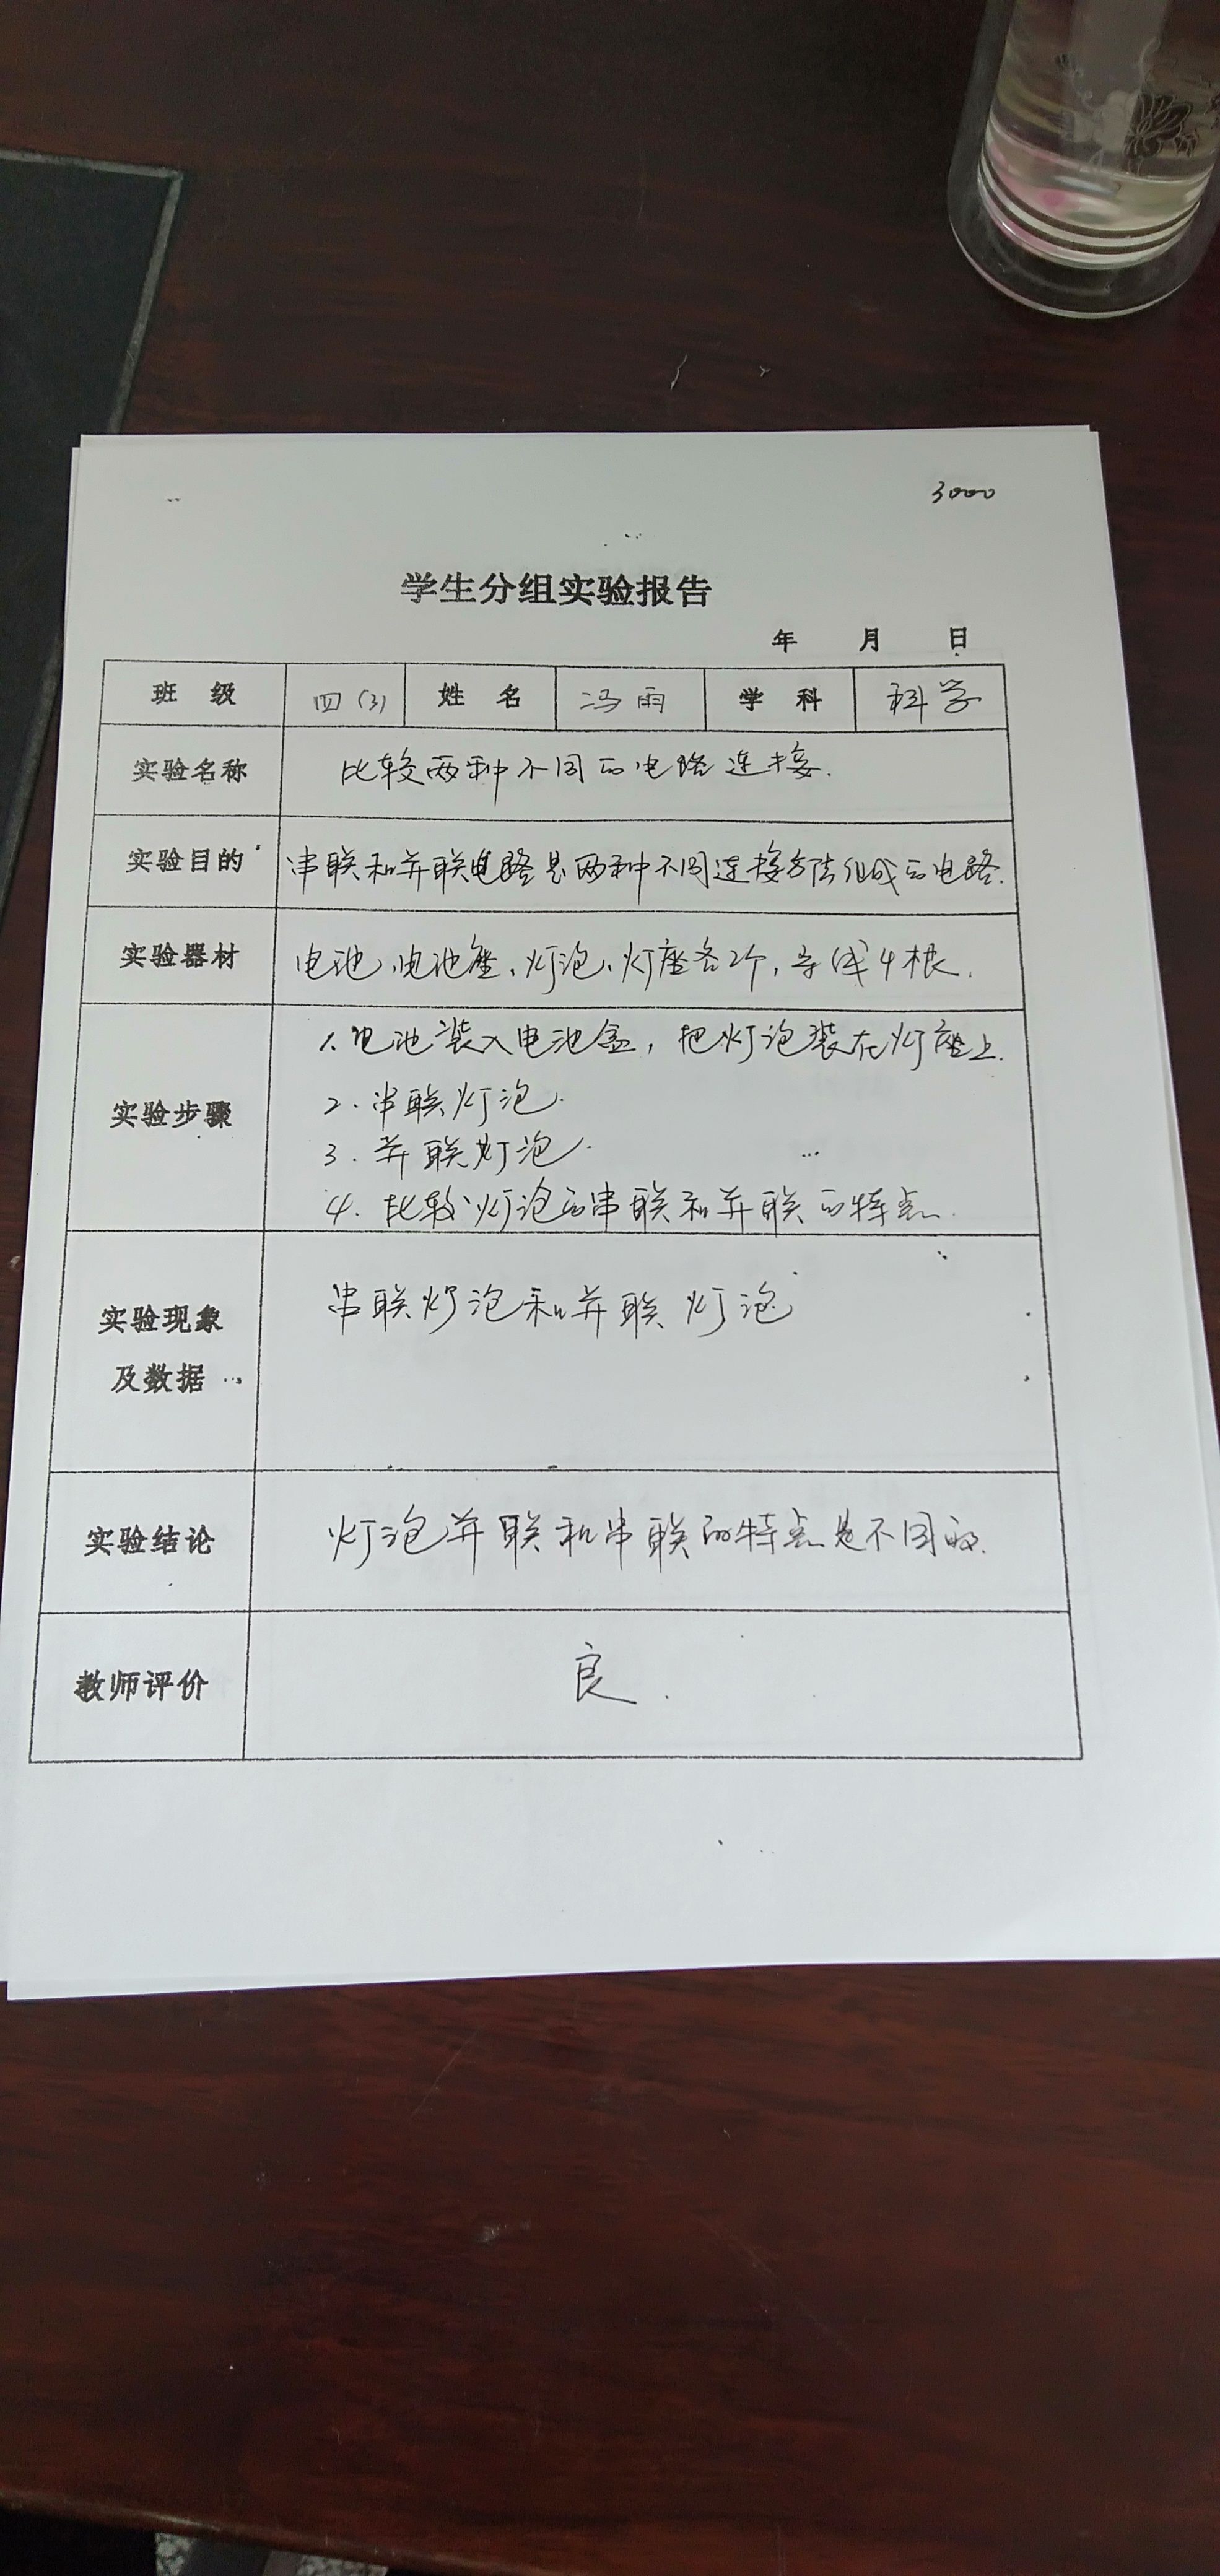 3000
学生分组实验报告
年 月 日
班 级 四(3) 姓 名 冯雨 学 科 科学
实验名称 比较两种不同的电路连接.
实验目的 串联和并联电路是两种不同连接方法组成的电路.
实验器材 电池、电池座、灯泡、灯座各2个,导线4根.
实验步骤
1.电池装入电池盒,把灯泡装在灯座上.
2.串联灯泡.
3.并联灯泡.
4.比较灯泡的串联和并联的特点.
实验现象
及数据
串联灯泡和并联灯泡
实验结论 灯泡并联和串联的特点是不同的.
教师评价 良.